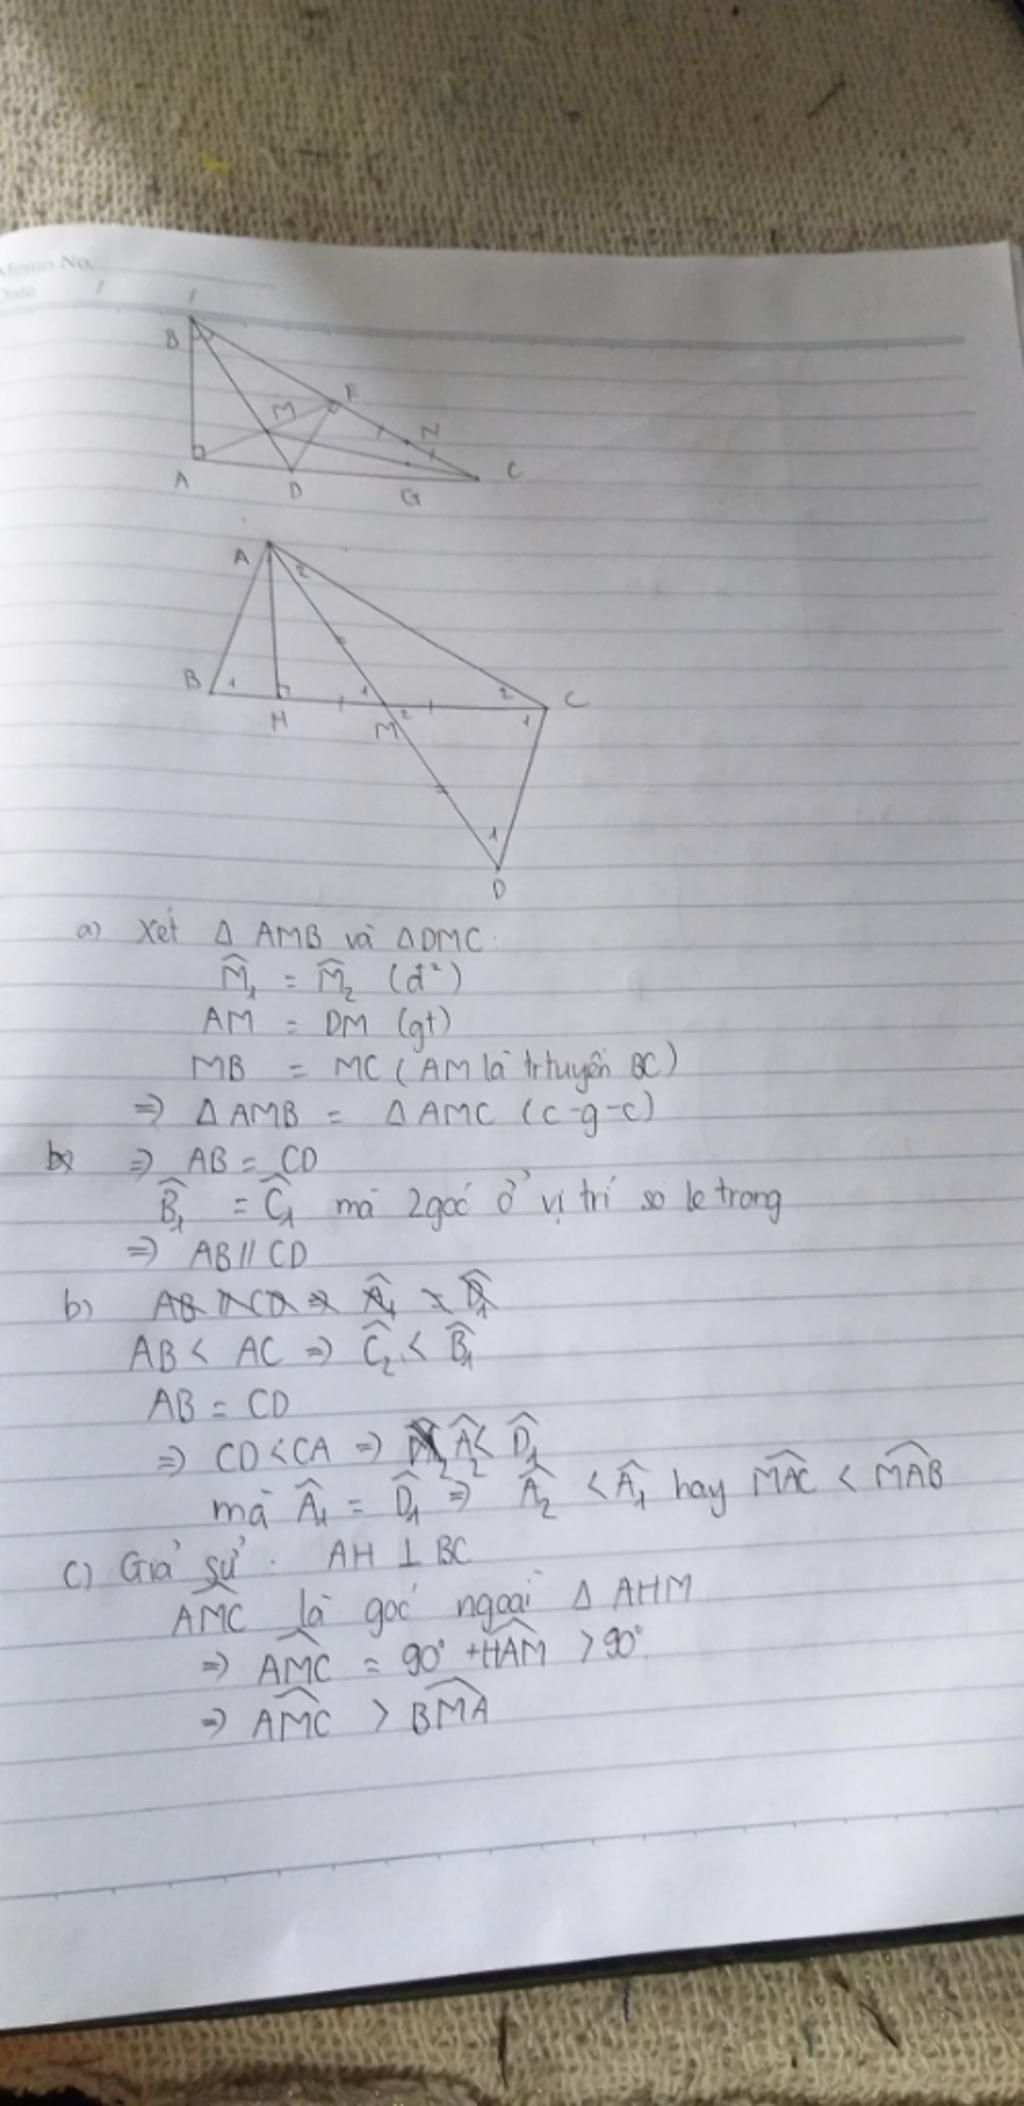 Memo No.
Date / /
B
E
M
N
A
D
G
C
A
2
B
1
1
2
C
H
M
2
1
1
D
a) Xét Δ AMB và ΔDMC:
M̂₁ = M̂₂ (đ²)
AM = DM (gt)
MB = MC (AM là trtuyến BC)
=> Δ AMB = Δ AMC (c-g-c)
=> AB = CD
B̂₁ = Ĉ₁ mà 2góc ở vị trí so le trong
=> AB // CD
b)
AB < AC => Ĉ₂ < B̂₁
AB = CD
=> CD < CA => Â₂ < D̂₁
mà Â₁ = D̂₁ => Â₂ < Â₁ hay M͡AC < M͡AB
c) Giả sử : AH ⊥ BC
A͡MC là góc ngoài Δ AHM
=> A͡MC = 90° + H͡AM > 90°.
=> A͡MC > B͡MA